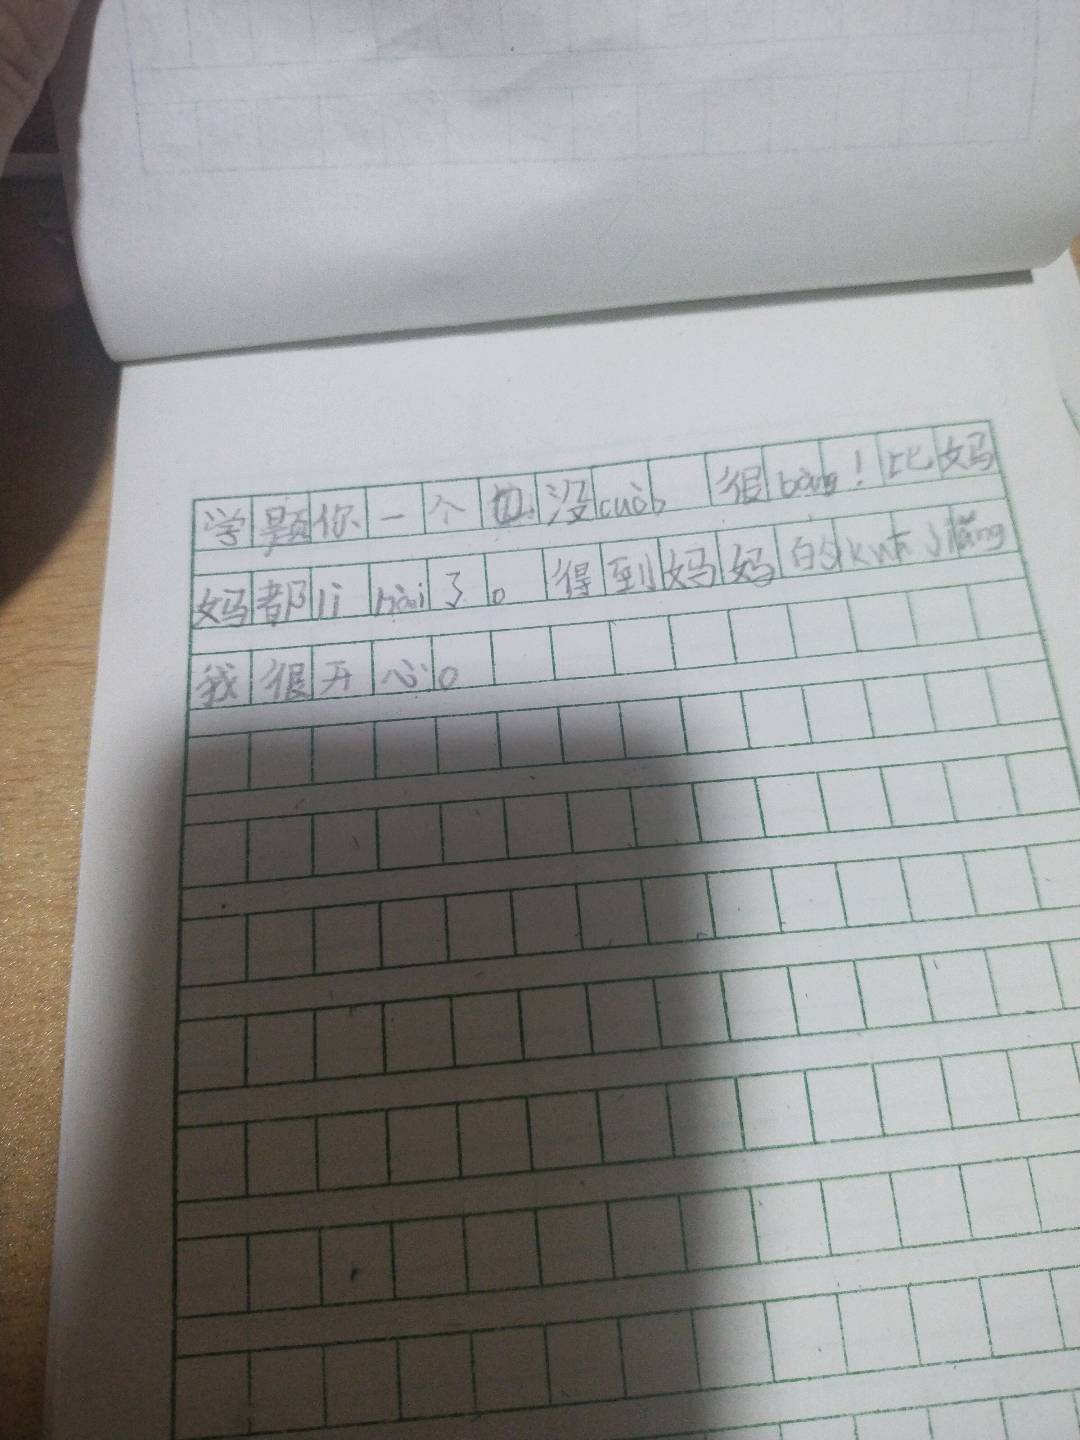 学题你一个也没cuò 很bàng！比妈
妈都lì hài了。得到妈妈的kuā jiǎng
我很开心。